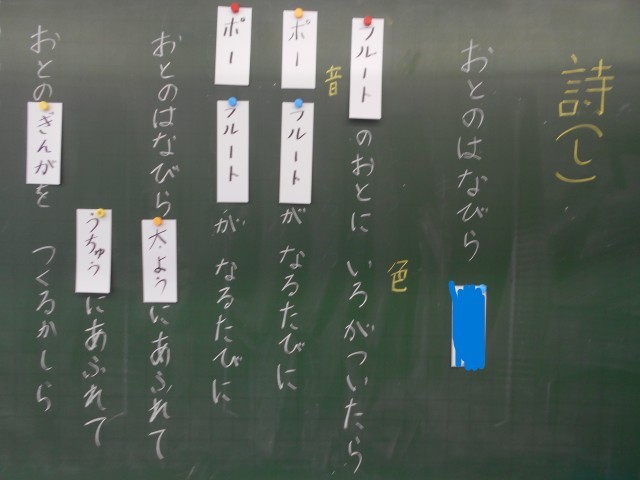 詩(し)
おとのはなびら
フルートのおとに いろがついたら
音
色
ポー フルートが なるたびに
ポー フルートが なるたびに
おとのはなびら 太ようにあふれて
うちゅうにあふれて
おとのぎんがを つくるかしら